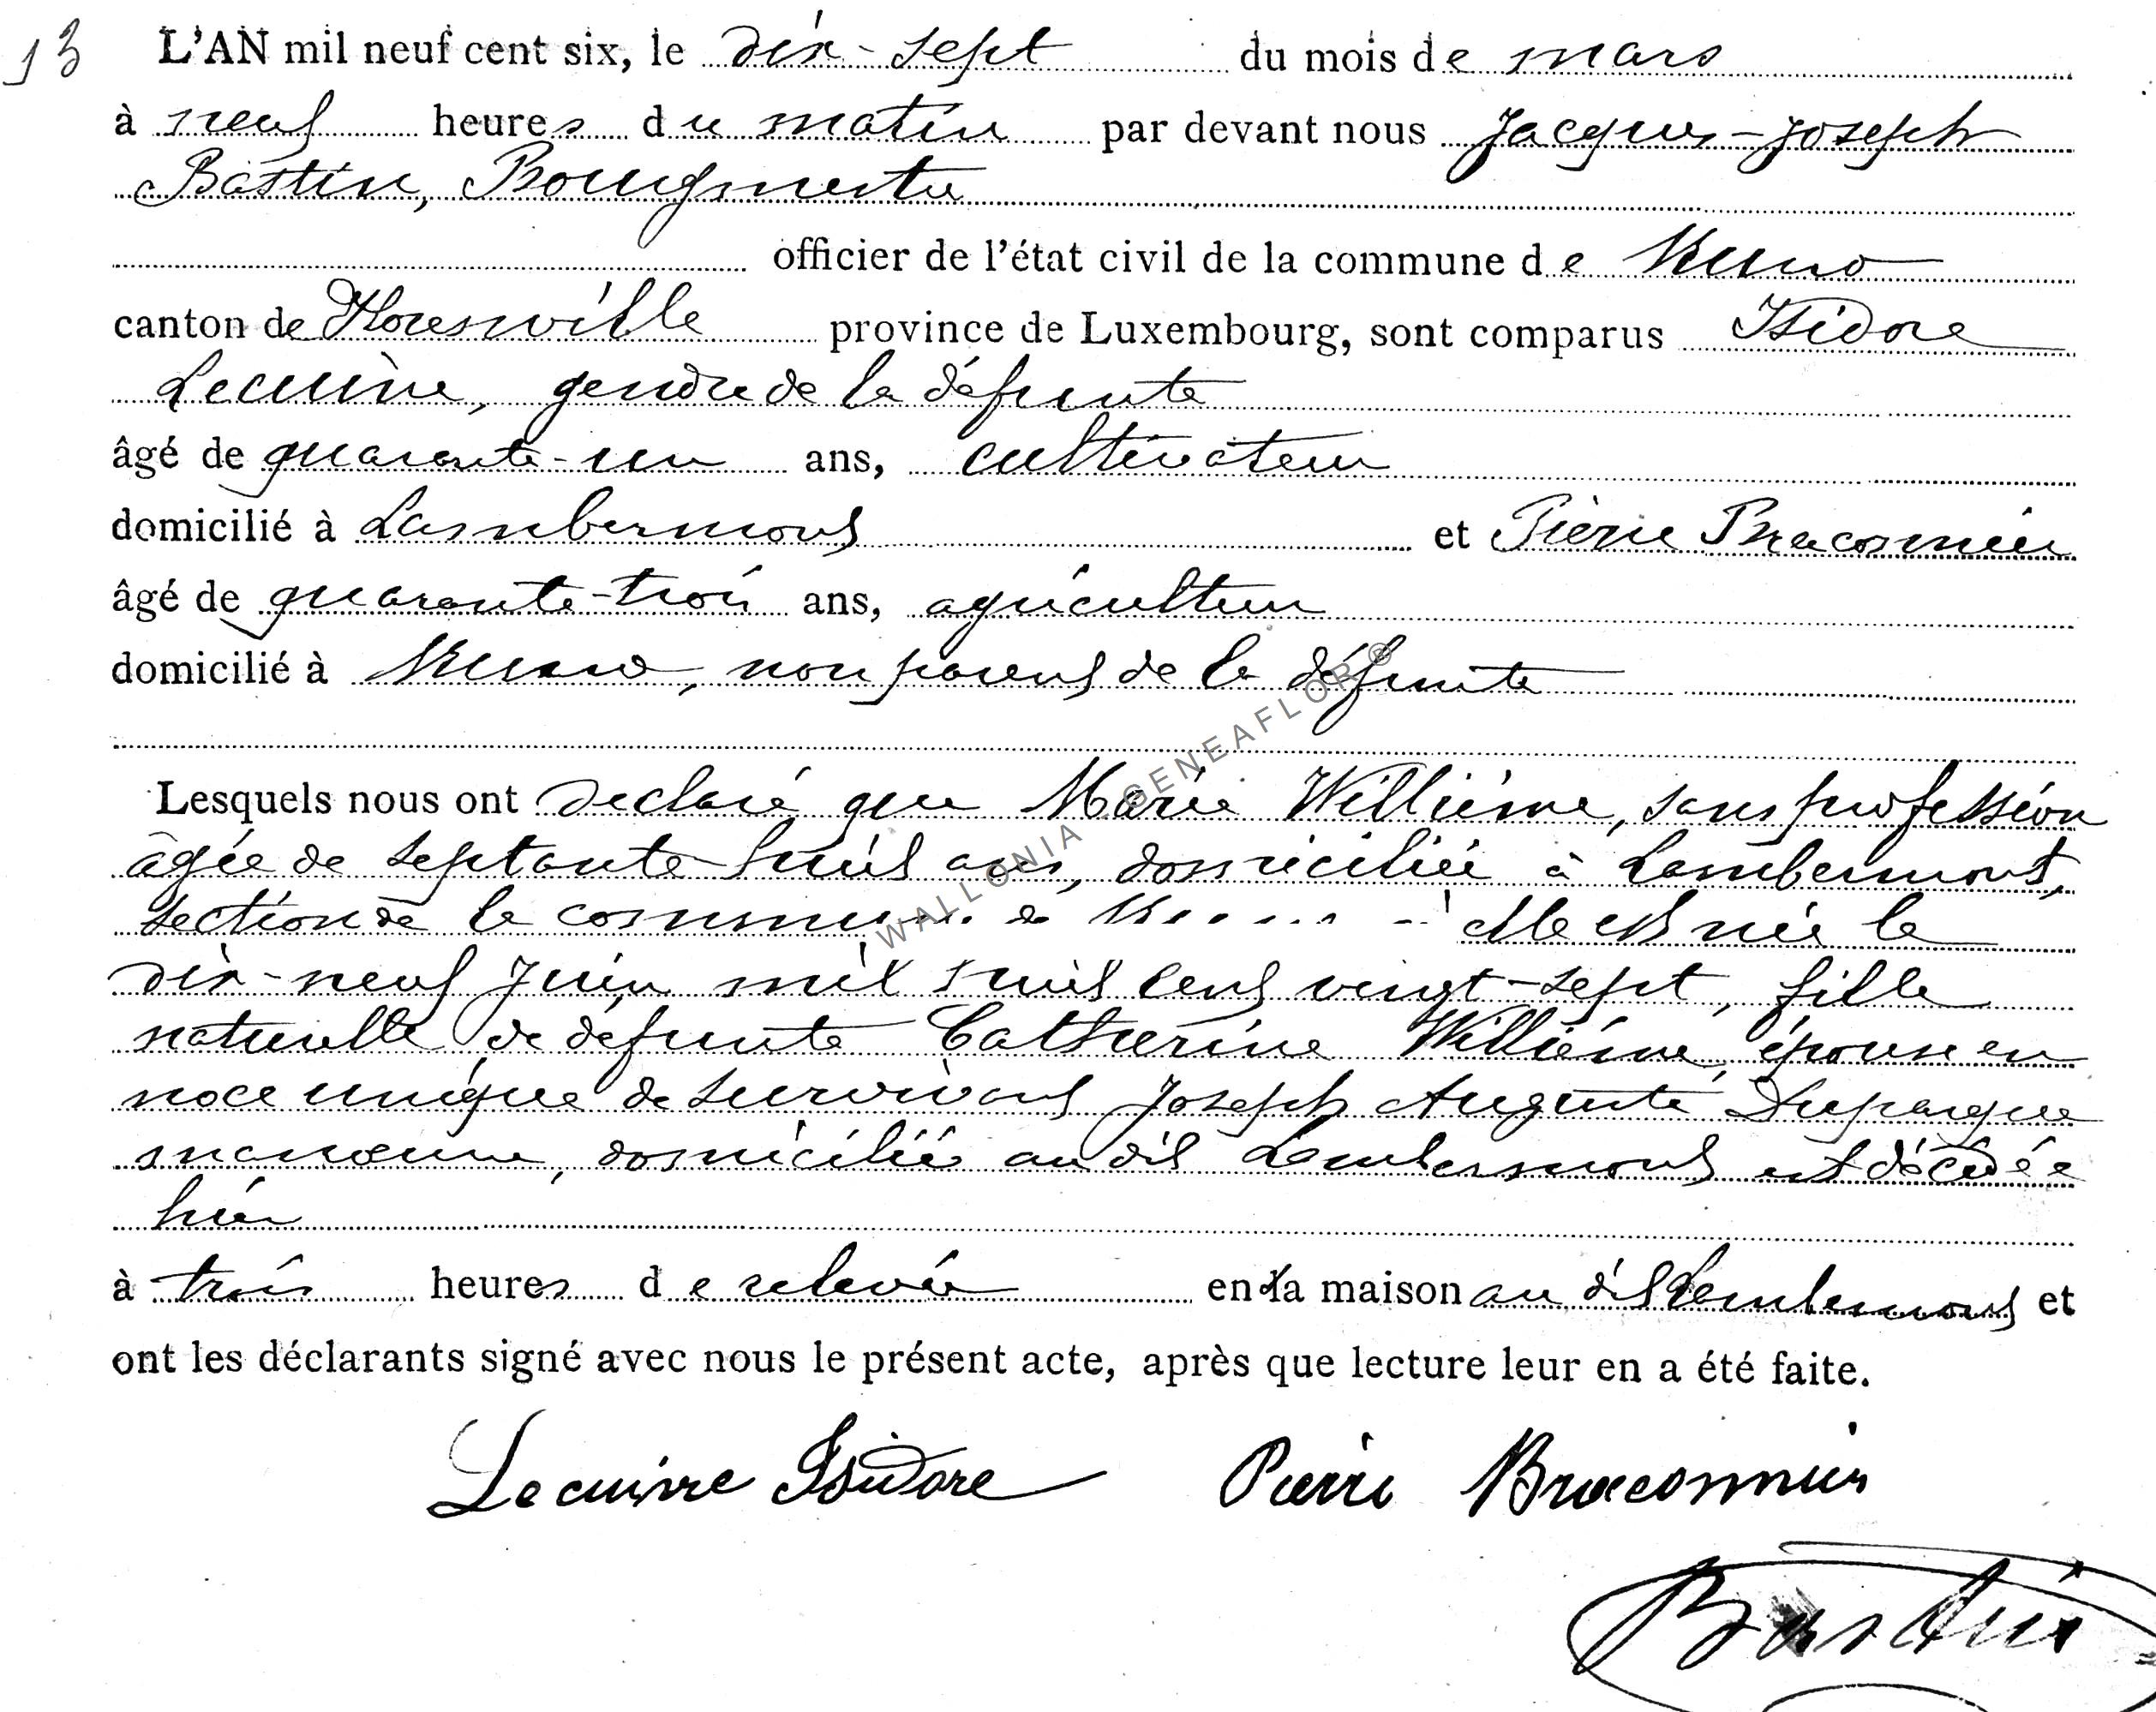 13
L'AN mil neuf cent six, le dix-sept du mois de mars
à neuf heures du matin par devant nous Jacques-Joseph
Bastin, Bourgmestre
officier de l'état civil de la commune de Muno
canton de Florenville province de Luxembourg, sont comparus Isidore
Lecuivre, gendre de la défunte
âgé de quarante-un ans, cultivateur
domicilié à Lambermont et Pierre Braconnier
âgé de quarante-trois ans, agriculteur
domicilié à Muno, non parent de la défunte
Lesquels nous ont déclaré que Marie Willième, sans profession
âgée de septante huit ans, domiciliée à Lambermont,
section de la commune de Muno elle est née le
dix-neuf Juin mil huit cent vingt-sept, fille
naturelle de défunte Catherine Willième, épouse en
noce unique de survivant Joseph Auguste Duparque
manœuvre, domicilié au dit Lambermont est décédée
hier
à trois heures de relevée en sa maison au dit Lambermont et
ont les déclarants signé avec nous le présent acte, après que lecture leur en a été faite.
Lecuivre Isidore Pierre Braconnier
Bastin
WALLONIA GENEAFLOR ®